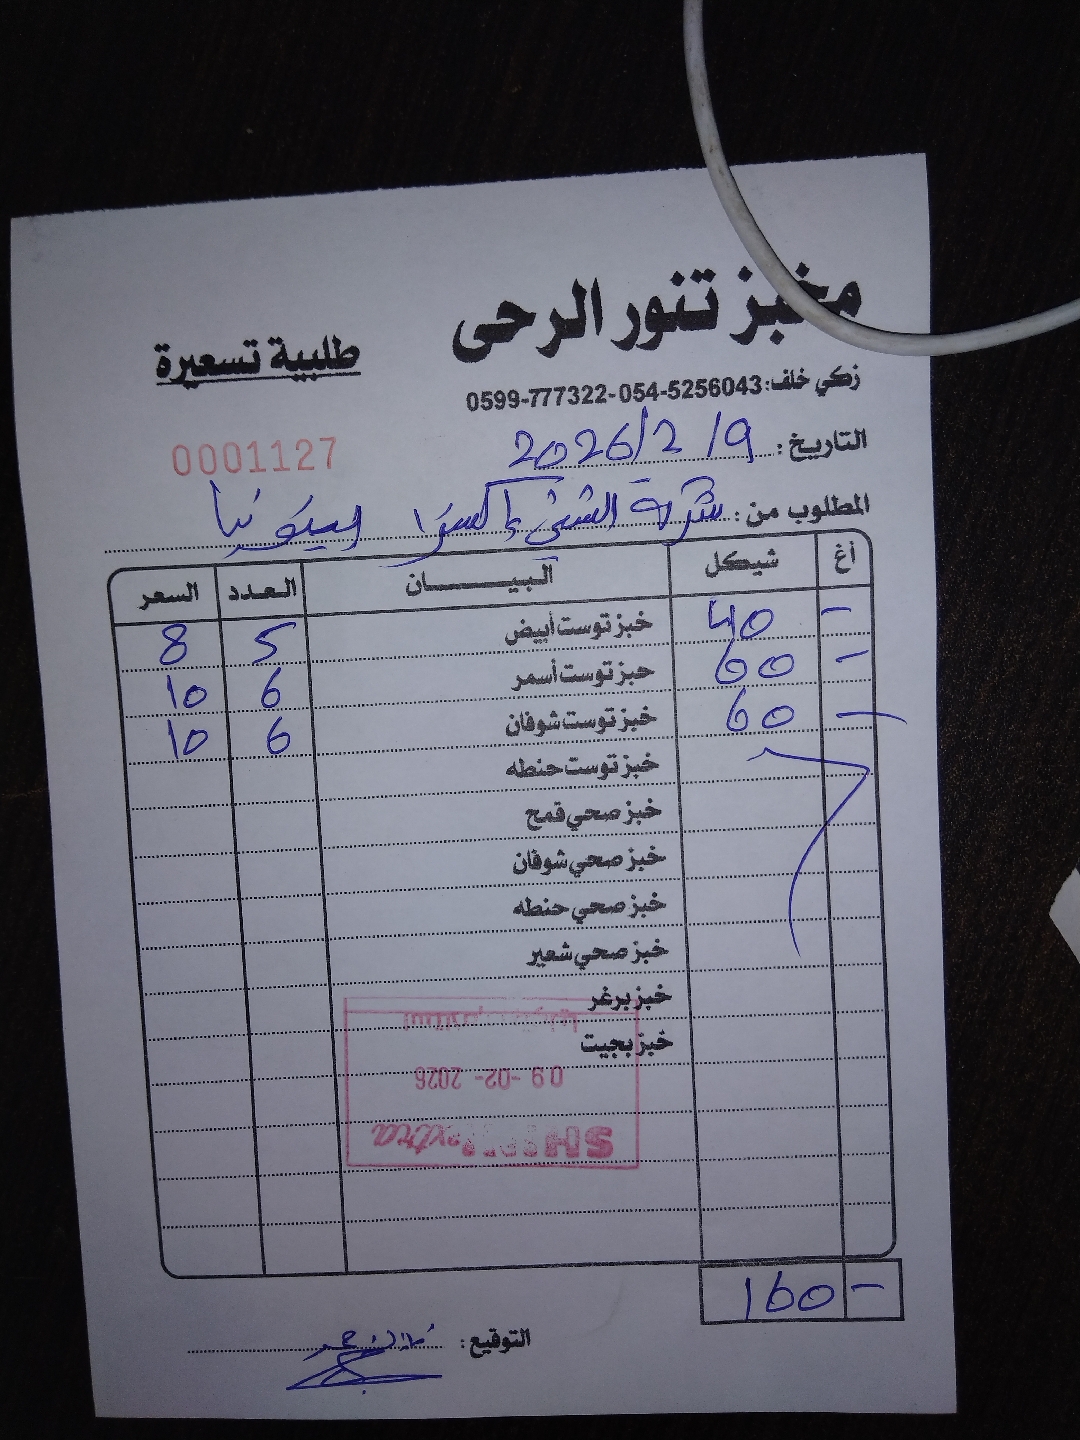 مخبز تنور الرحى
طلبية تسعيرة
زكي خلف: 0599-777322-054-5256043
0001127
التاريخ: 2026/2/9
المطلوب من: شركة الشني إكسترا
أغ شيكل البيــــــان العدد السعر
- 40 خبز توست أبيض 5 8
- 60 خبز توست أسمر 6 10
- 60 خبز توست شوفان 6 10
خبز توست حنطه
خبز صحي قمح
خبز صحي شوفان
خبز صحي حنطه
خبز صحي شعير
خبز برغر
خبز بجيت
09 -02- 2026
extra
160 -
التوقيع: